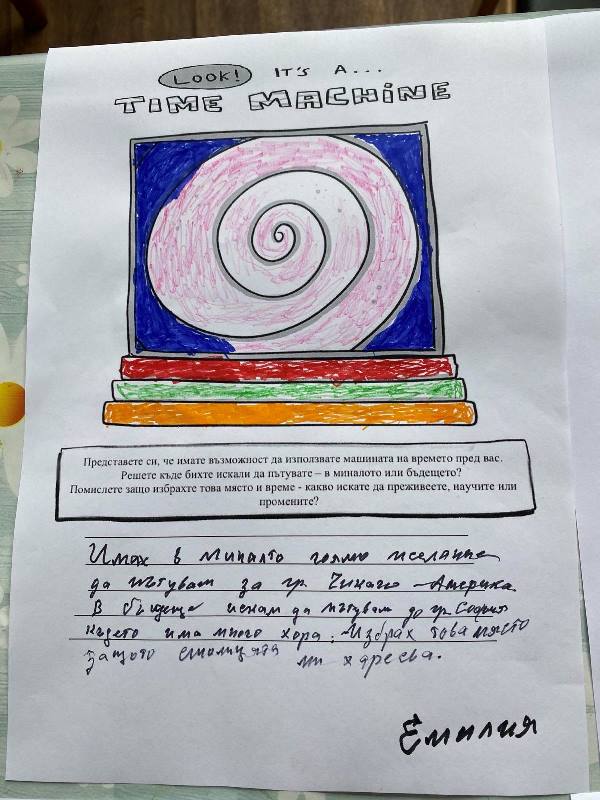 LOOK! IT'S A...
TIME MACHINE
Представете си, че имате възможност да използвате машината на времето пред вас.
Решете къде бихте искали да пътувате – в миналото или бъдещето?
Помислете защо избрахте това място и време - какво искате да преживеете, научите или
промените?
Имах в миналто голямо желание
да пътувам за гр. Чикаго – Америка.
В бъдеще искам да пътувам до гр. София
където има много хора. Избрах това място
защото столицата ми харесва.
Емилия